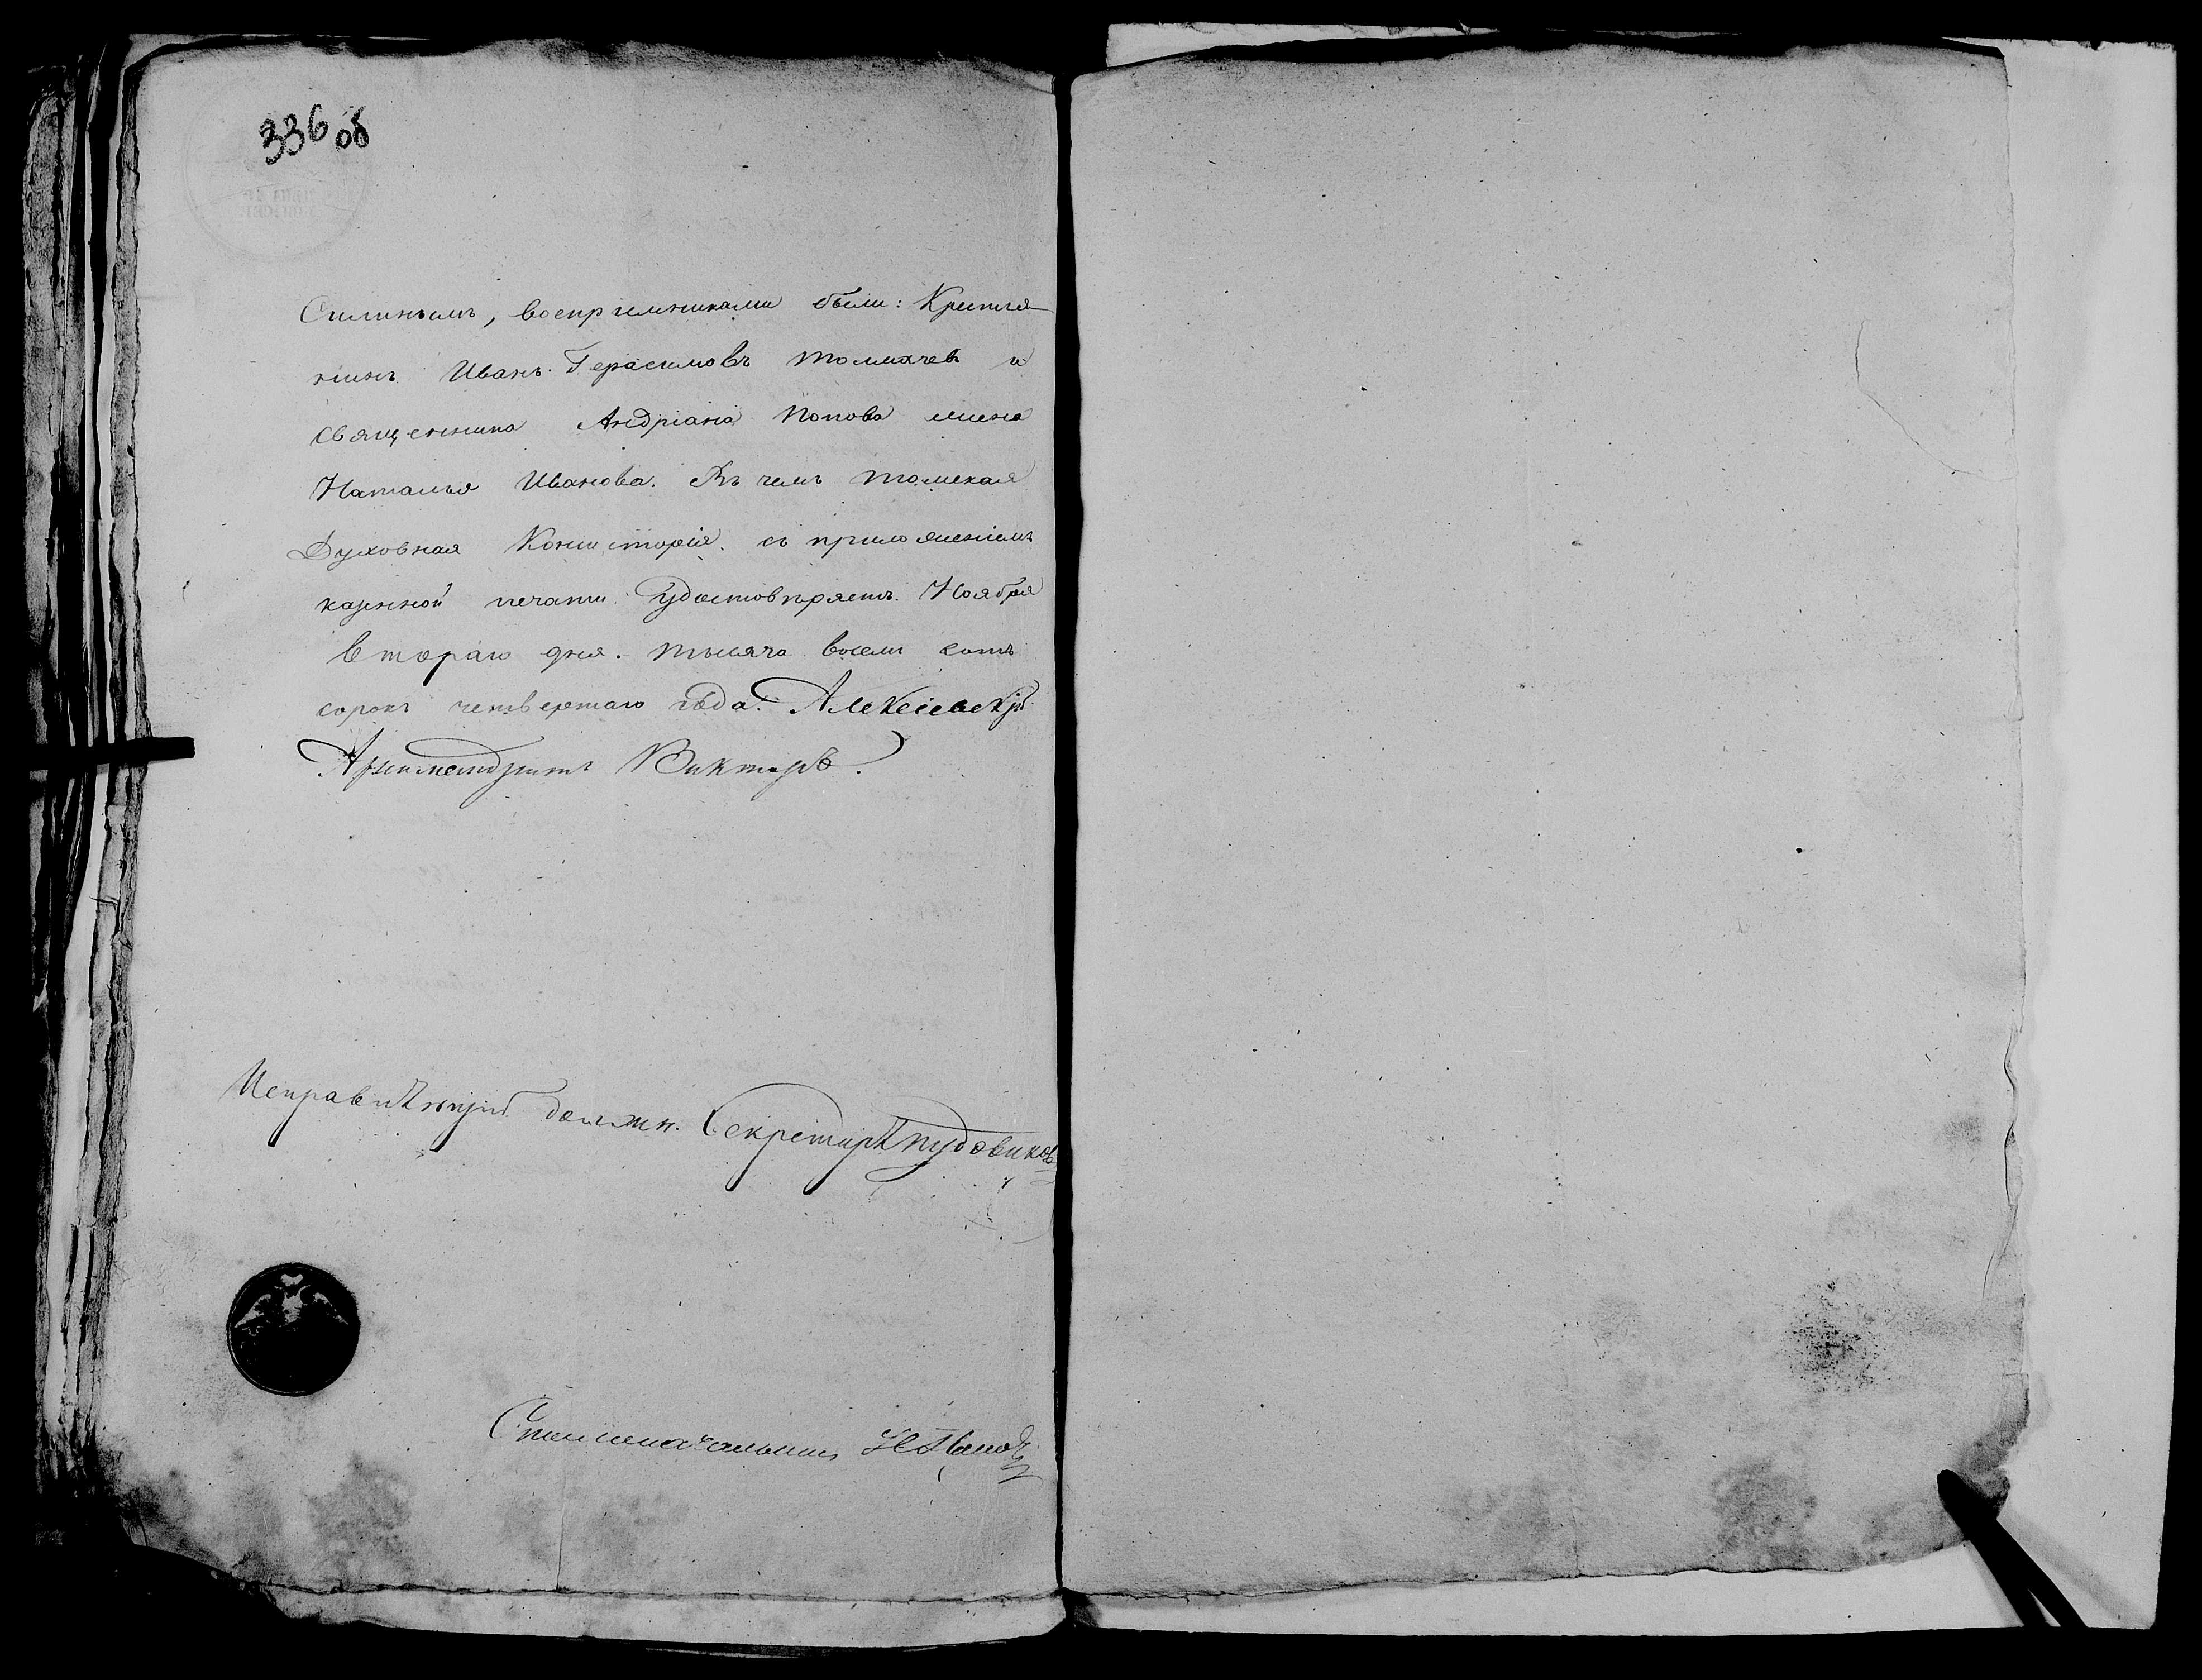 336 об
Силинымъ, воспріемниками были: Крестья-
нинъ Иванъ Герасимовъ Толмачев и
Священника Андріана Попова жена
Наталья Иванова. Въ чемъ Томская
Духовная Консисторія съ приложеніемъ
казенной печати удостовѣряетъ. Ноября
втораго дня. тысяча восемь сотъ
сорокъ четвертаго года. Алексіевскій
Архимандритъ Викторъ.
Исправляющій должн. Секретаря Пудовиковъ
Столоначальникъ